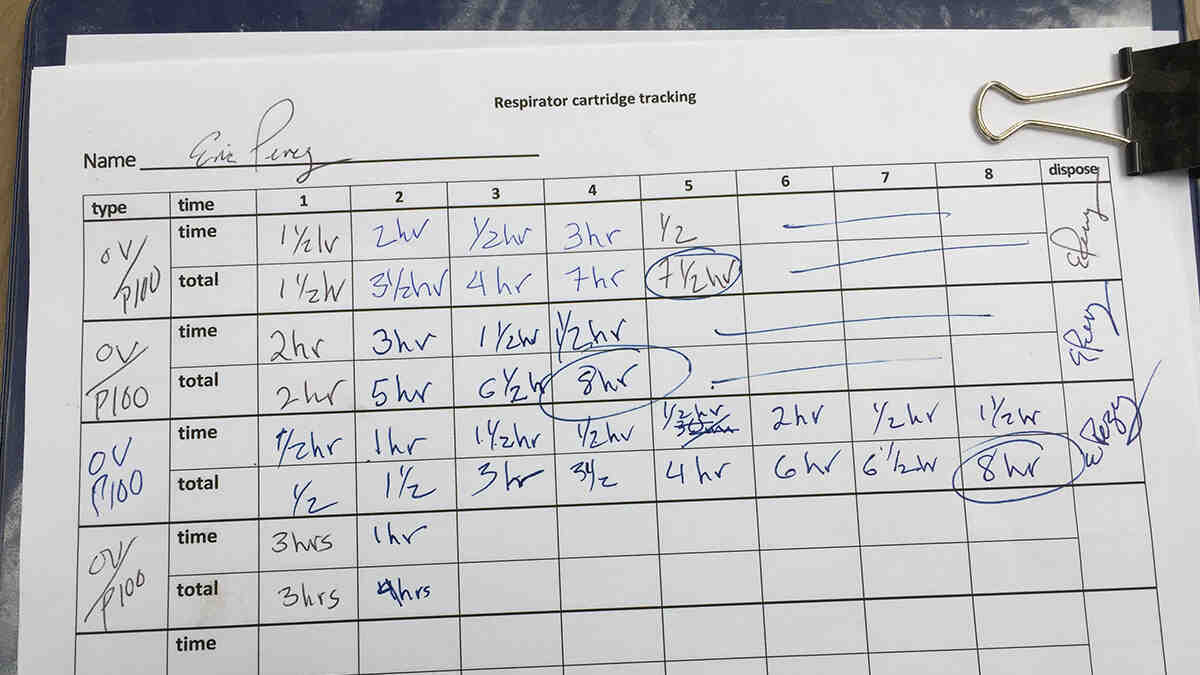 Respirator cartridge tracking
Name Eric Perez
type time 1 2 3 4 5 6 7 8 dispose
OV/P100 time 1½hr 2hr ½hr 3hr ½ EPerez
total 1½hr 3½hr 4hr 7hr 7½hr
OV/P100 time 2hr 3hr 1½hr 1½hr EPerez
total 2hr 5hr 6½hr 8hr
OV P100 time ½hr 1hr 1½hr ½hr ½hr 2hr ½hr 1½hr
total ½ 1½ 3hr 3½ 4hr 6hr 6½hr 8hr
OV/P100 time 3hrs 1hr
total 3hrs 4hrs
time